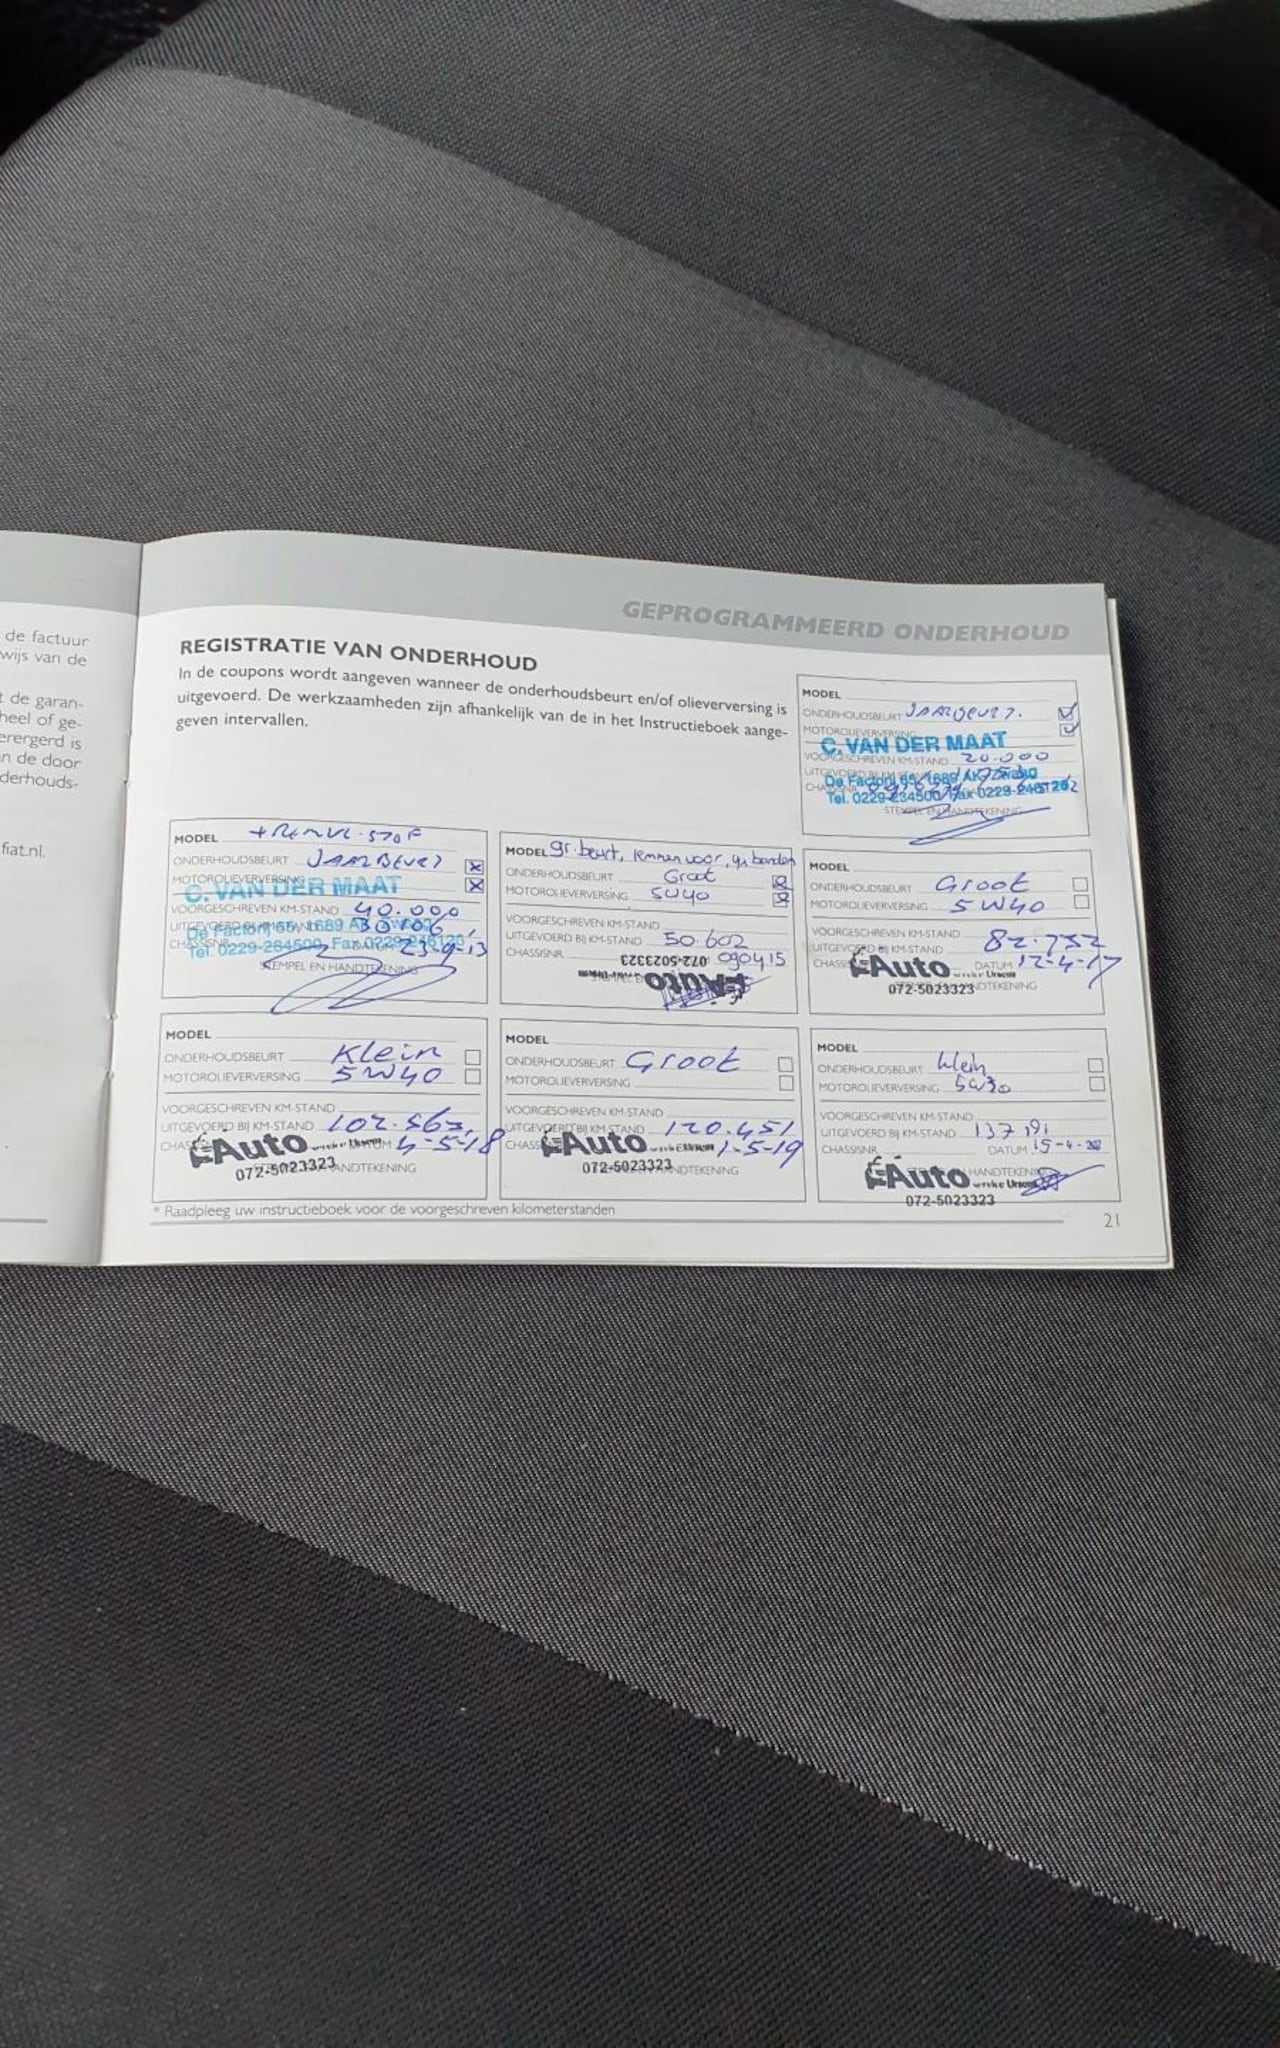 de factuur
wijs van de
t de garan-
heel of ge-
erergerd is
n de door
derhouds-
fiat.nl.
GEPROGRAMMEERD ONDERHOUD
REGISTRATIE VAN ONDERHOUD
In de coupons wordt aangeven wanneer de onderhoudsbeurt en/of olieverversing is
uitgevoerd. De werkzaamheden zijn afhankelijk van de in het Instructieboek aange-
geven intervallen.
MODEL
ONDERHOUDSBEURT JAARBEURT.
MOTOROLIEVERVERSING
C. VAN DER MAAT
VOORGESCHREVEN KM-STAND 20.000
De Factorij 65, 1689 AK Zwaag
Tel. 0229-284500, Fax 0229-248120
STEMPEL EN HANDTEKENING
MODEL + REMVL. 570 F
ONDERHOUDSBEURT JAARBEURT
MOTOROLIEVERVERSING
C. VAN DER MAAT
VOORGESCHREVEN KM-STAND 40.000
UITGEVOERD BIJ KM-STAND 30106
De Factorij 65, 1689 AK Zwaag
CHASSISNR. 23-9-13
Tel. 0229-284500, Fax 0229-248120
STEMPEL EN HANDTEKENING
MODEL gr. beurt, remmen voor, 4x banden
ONDERHOUDSBEURT Groot
MOTOROLIEVERVERSING 5W40
VOORGESCHREVEN KM-STAND
UITGEVOERD BIJ KM-STAND 50.602
CHASSISNR. 090415
072-5023323
Auto
MODEL
ONDERHOUDSBEURT Groot
MOTOROLIEVERVERSING 5W40
VOORGESCHREVEN KM-STAND
UITGEVOERD BIJ KM-STAND 82.752
CHASSISNR. DATUM 12-4-17
Auto
072-5023323
STEMPEL EN HANDTEKENING
MODEL
ONDERHOUDSBEURT Klein
MOTOROLIEVERVERSING 5W40
VOORGESCHREVEN KM-STAND
UITGEVOERD BIJ KM-STAND 102.563
CHASSISNR. DATUM 4-5-18
Auto
072-5023323
STEMPEL EN HANDTEKENING
MODEL
ONDERHOUDSBEURT Groot
MOTOROLIEVERVERSING
VOORGESCHREVEN KM-STAND
UITGEVOERD BIJ KM-STAND 120.451
CHASSISNR. 1-5-19
Auto
072-5023323
STEMPEL EN HANDTEKENING
MODEL
ONDERHOUDSBEURT klein
MOTOROLIEVERVERSING 5w30
VOORGESCHREVEN KM-STAND
UITGEVOERD BIJ KM-STAND 137191
CHASSISNR. DATUM 15-4-20
STEMPEL EN HANDTEKENING
Auto
072-5023323
* Raadpleeg uw instructieboek voor de voorgeschreven kilometerstanden
21